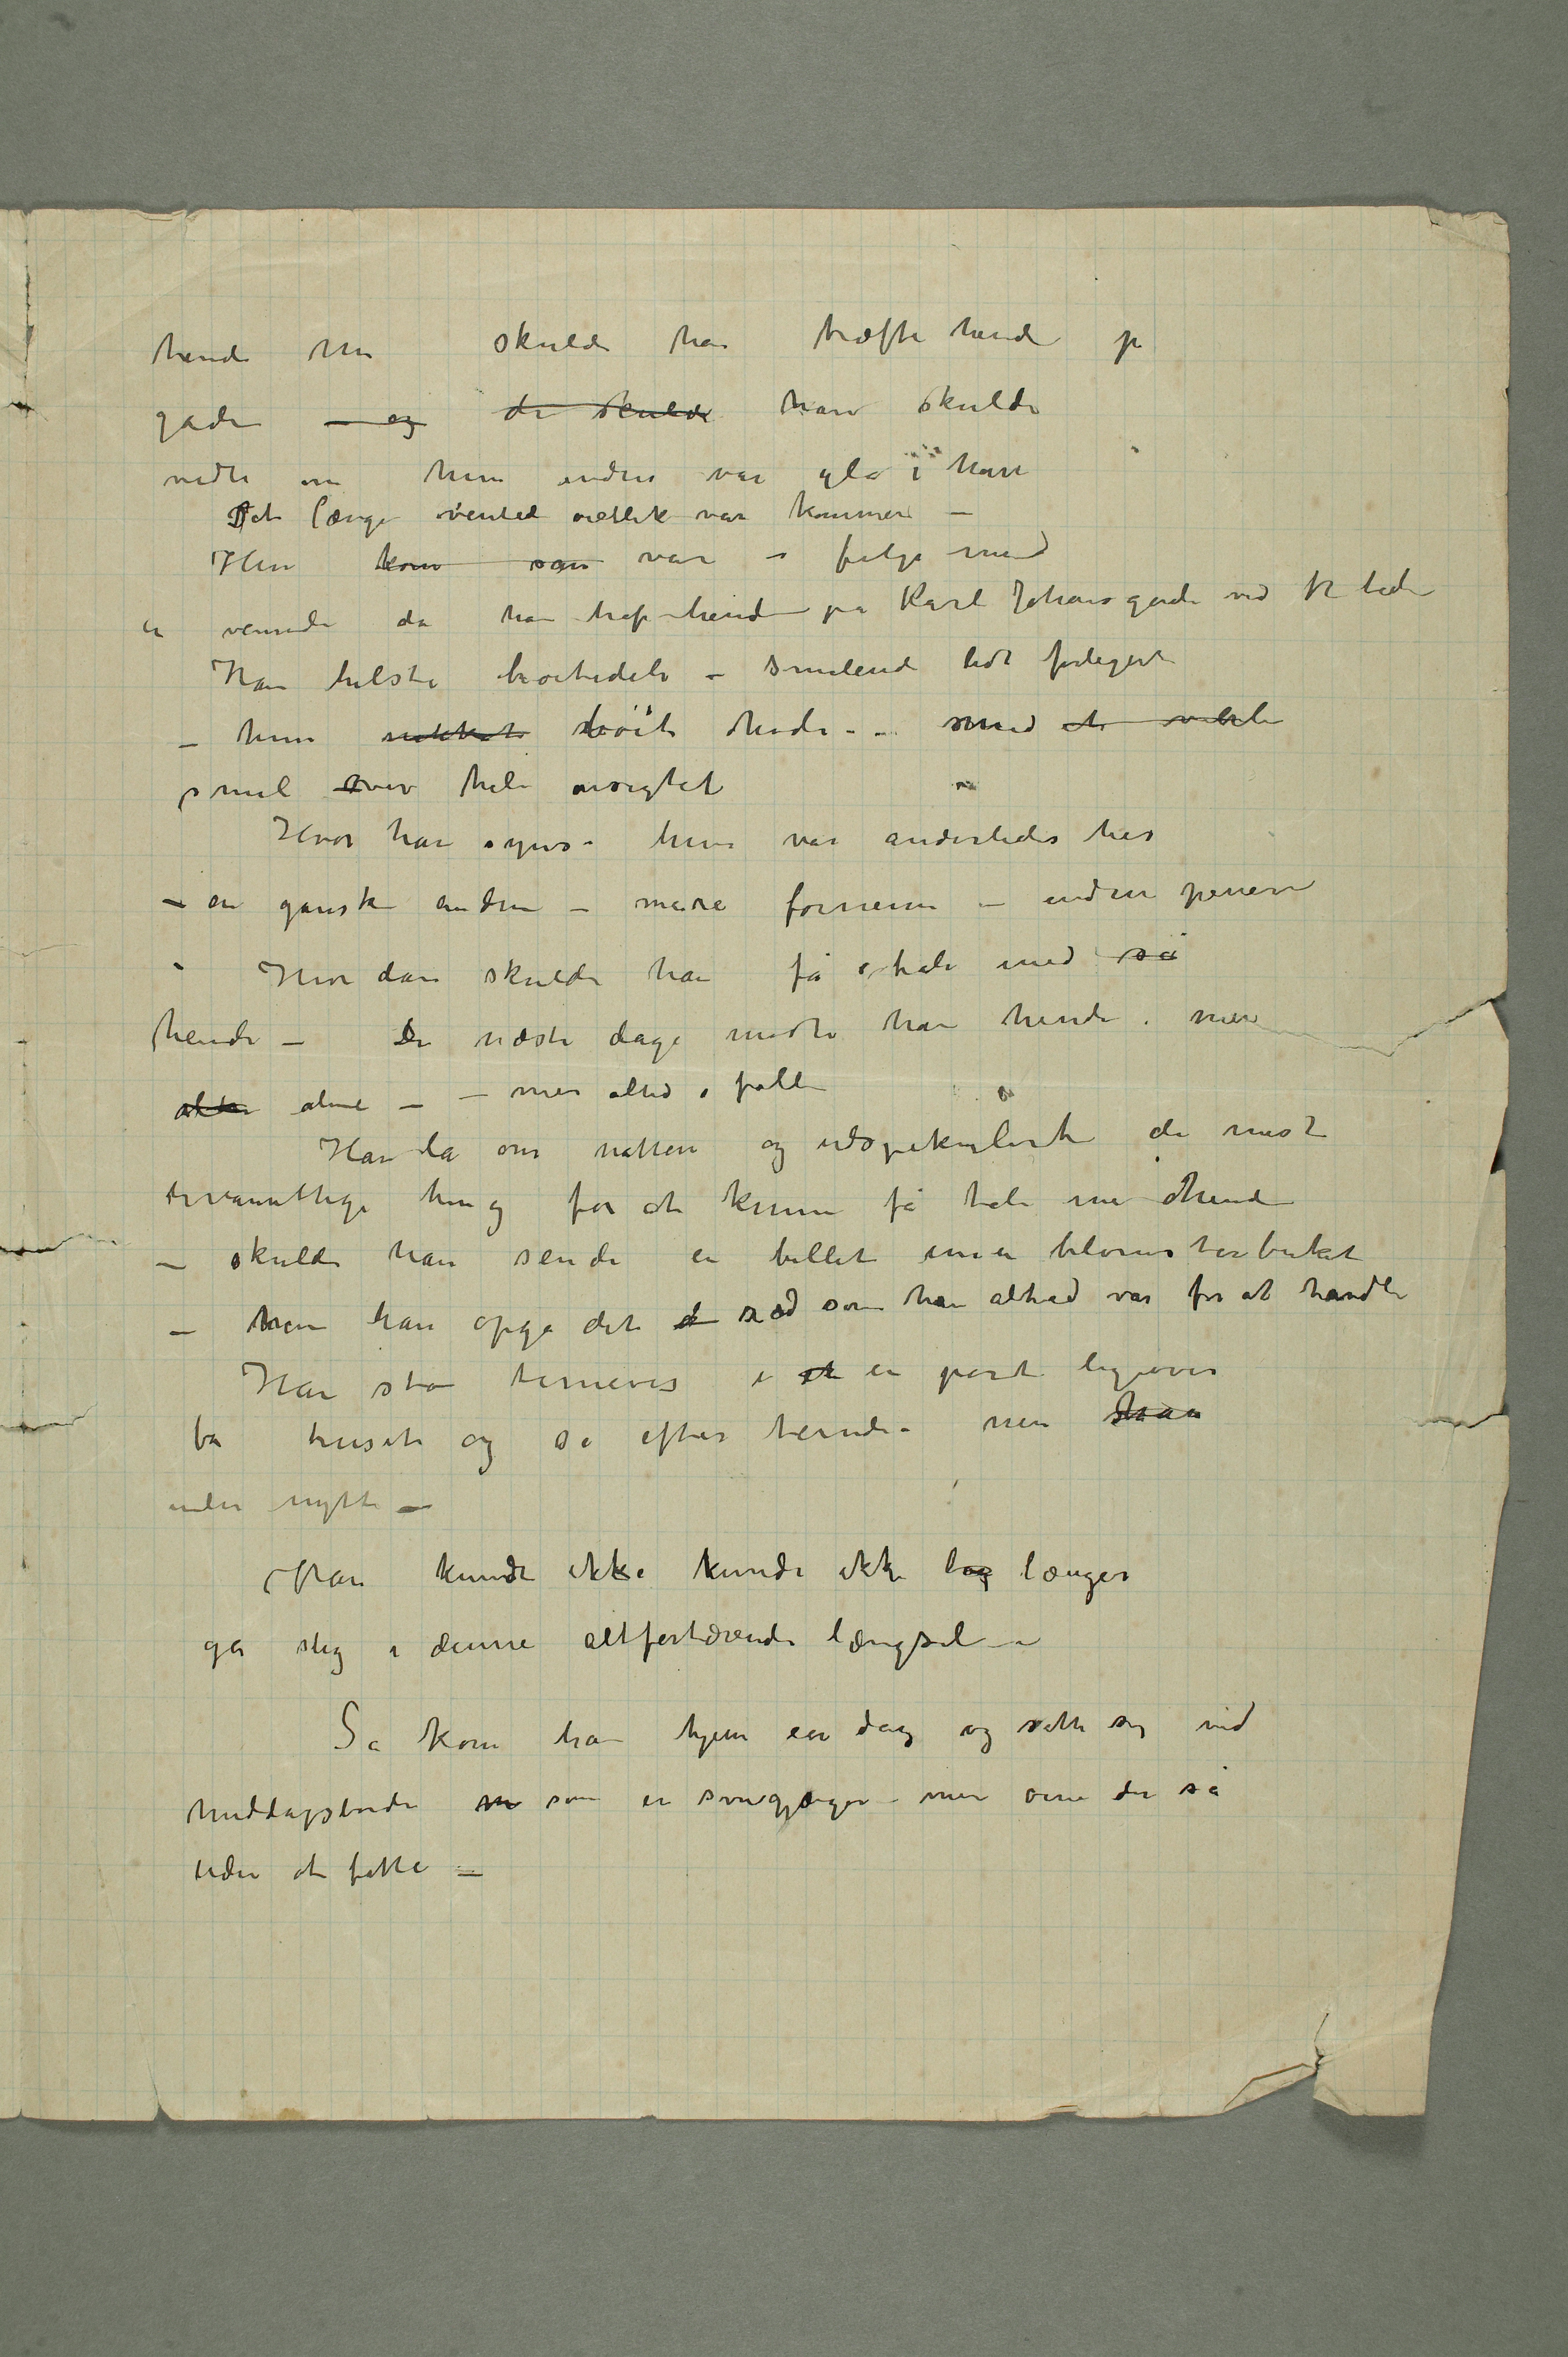 hende nu skulde han træffe hende på
gaden — og de skulde han skulde
vide om hun endnu var gla i ham
Det længe ventede øieblik var kommen —
Hun kom som var i følge med
en veninde da han traf hende på Karl Johansgade ved tiden
Han hilste ærbødig — smilende lidt forlegen
— hun nikket bøit hode – med et
smil over hele ansigtet
Hvor han synes hun var anderledes her
— en ganske anden — mere fornem — endnu penere
Hvordan skulde han få tale med så
hende — De næste dage mødte han hende. men
alene — – men altid i følge
Han lå om natten og udspekulerte de mest
urvanntlige ting for at kunne få tale med hende
— skulde han sende en billet i en blomsterbuket
— men han opga det ræd som han altid var for at handle
Han sto timevis i et en port ligeover
for huset og så efter hende – men
uden nytte —
Han kunde ikke kunde ikke længer
gå slig i denne altfortærende længsel –
Så kom han hjem en dag og satte sig ved
middagsbordet som en søvngjænger – men øine der så
uden at fatte —